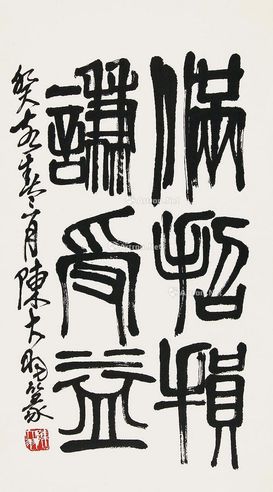 滿招損
謙受益
癸亥春三月陳大羽篆